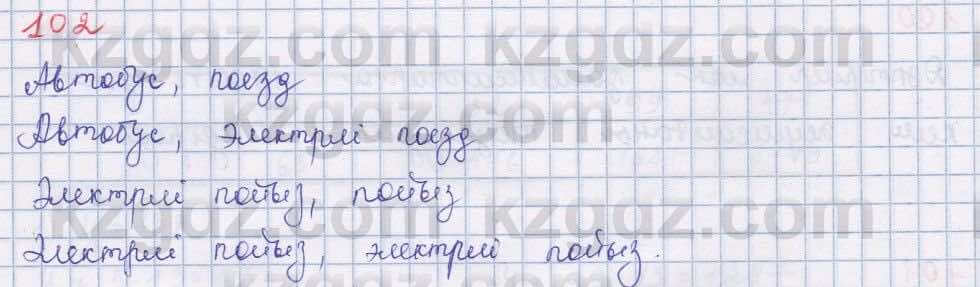 102
Автобус, поезд
Автобус, электрлі поезд
Электрлі пойыз, пойыз
Электрлі пойыз, электрлі пойыз.
kzgdz.com kzgdz.com
kzgdz.com
kzgdz.com kzgdz.com